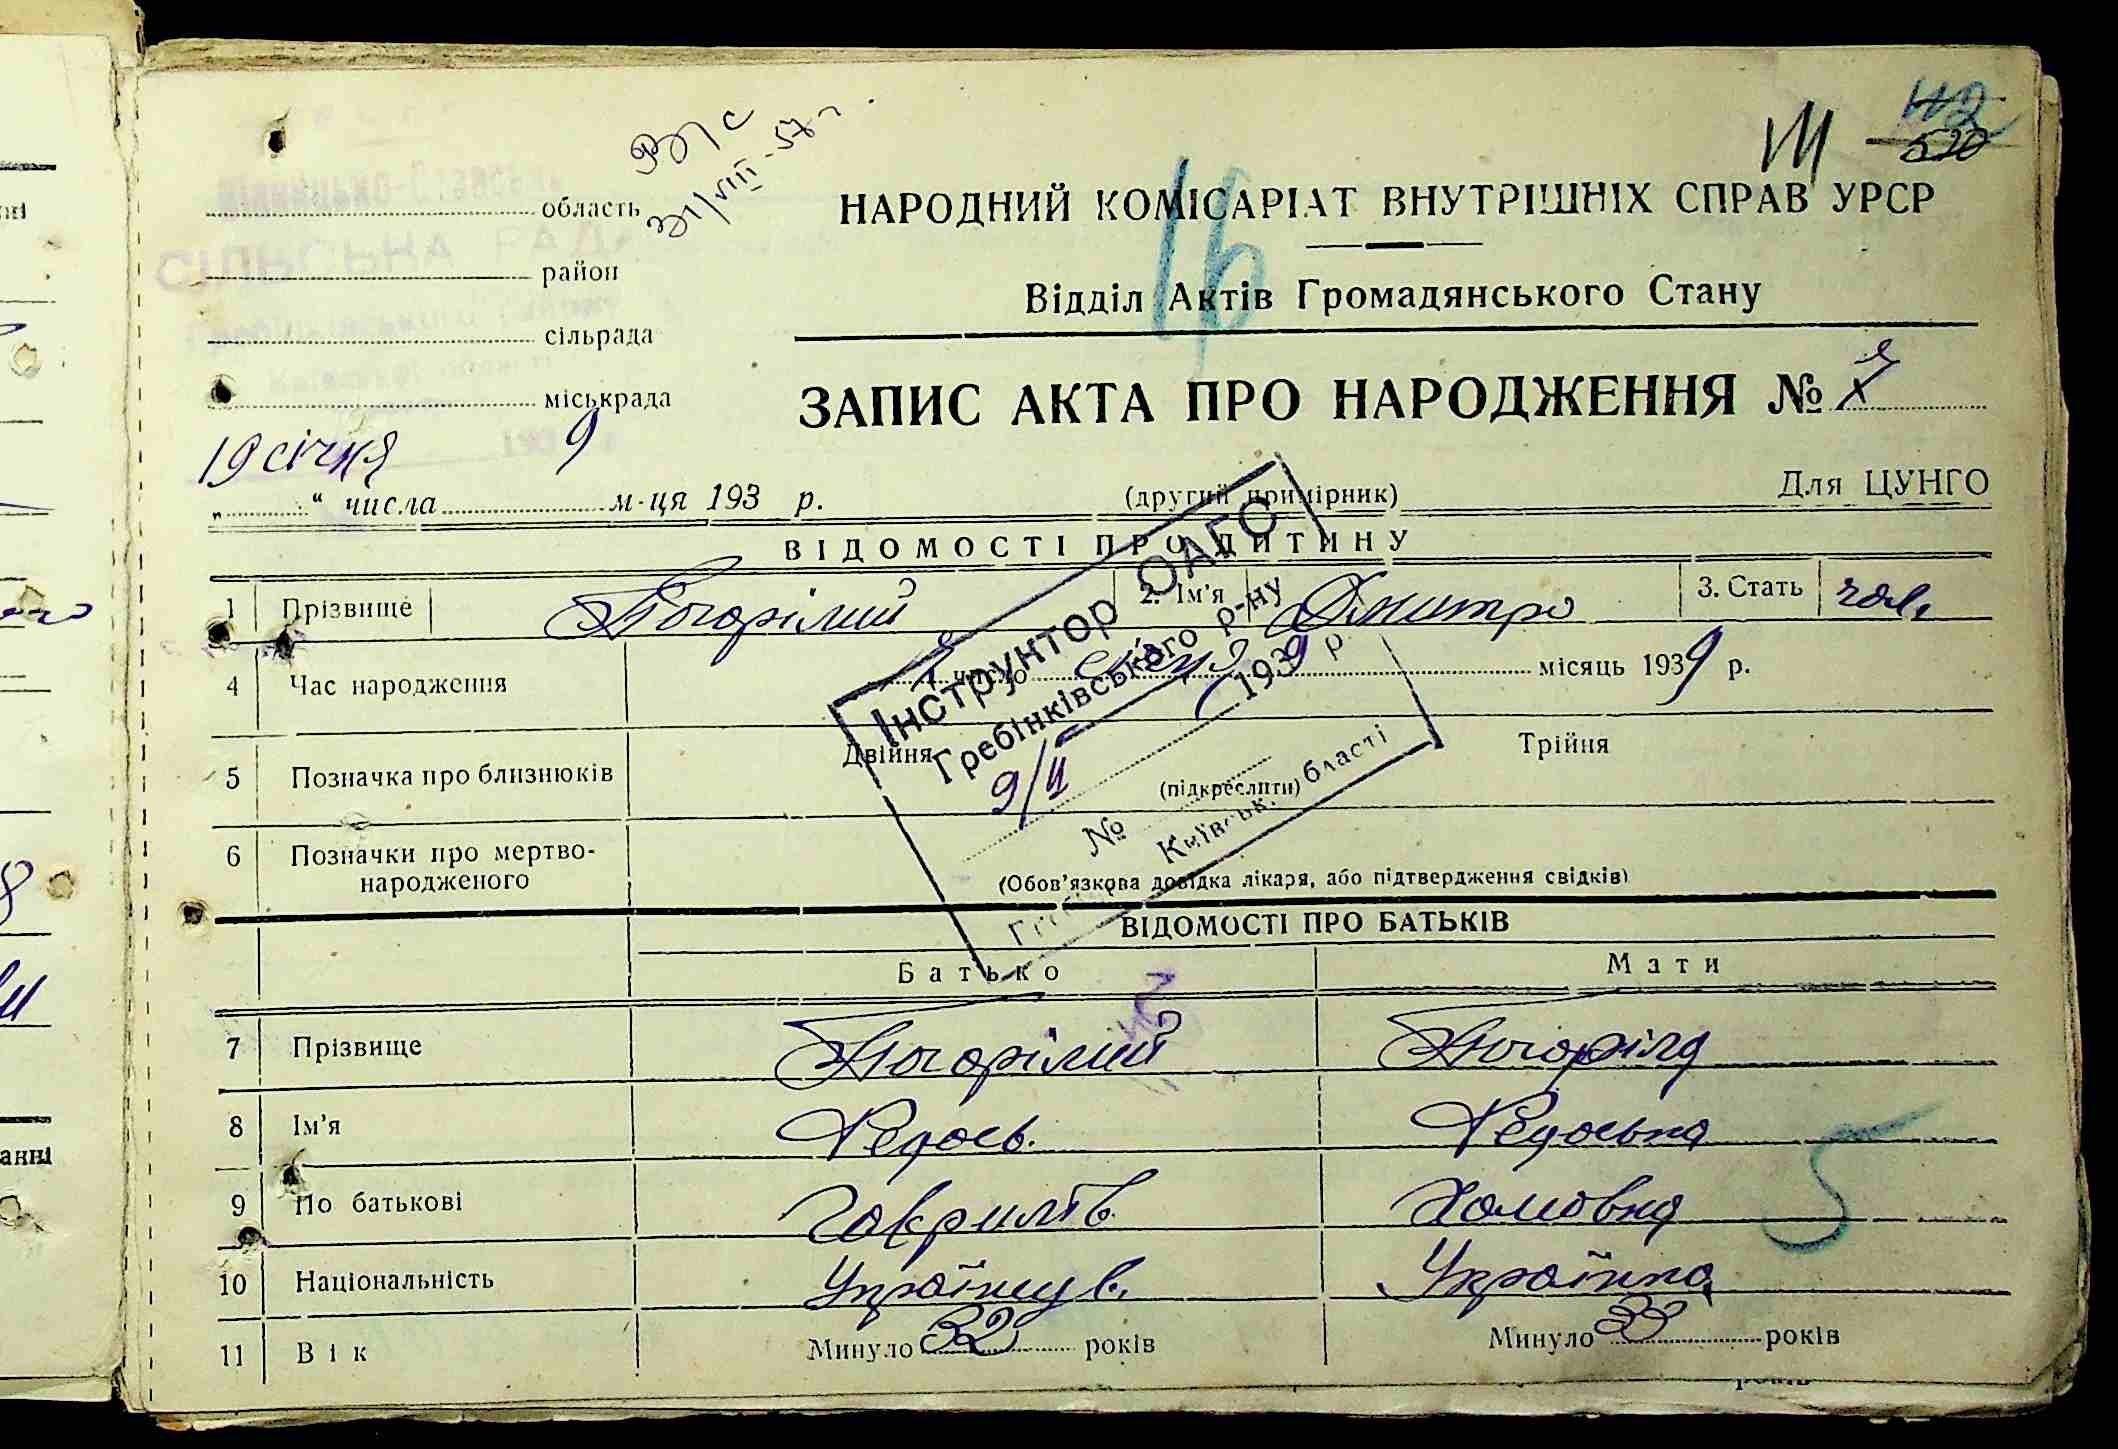 112
520
ВПС
31/VIII-57 г.
область
район
сільрада
міськрада
НАРОДНИЙ КОМІСАРІАТ ВНУТРІШНІХ СПРАВ УРСР
Відділ Актів Громадянського Стану
ЗАПИС АКТА ПРО НАРОДЖЕННЯ №
19 січня 9
„ “ числа м-ця 193 р.
(другий примірник)
Для ЦУНГО
ВІДОМОСТІ ПРО ДИТИНУ
1 Прізвище Погорілий 2. Ім'я Дмитро 3. Стать чол.
4 Час народження число січня місяць 1939 р.
5 Позначка про близнюків Двійня Трійня
(підкреслити)
6 Позначки про мертво-
народженого
(Обов'язкова довідка лікаря, або підтвердження свідків)
Інструктор ОАГС
Гребінківського р-ну
9/II 1939 р.
№
Київськ. бласті
ВІДОМОСТІ ПРО БАТЬКІВ
Батько Мати
7 Прізвище Погорілий Погоріла
8 Ім'я Федось. Федоська
9 По батькові Гаврилів Хомовна
10 Національність Українців. Українка
11 Вік Минуло 32 років Минуло 33 років